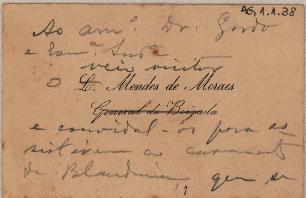 AG, 1.1.38
Ao am.º Dr. Gordo
e Exm.ª
veio visitar
O L. Mendes de Moraes
General de Brigada
e convidal-os para as
sistirem ao casamento
de Blandina, que se